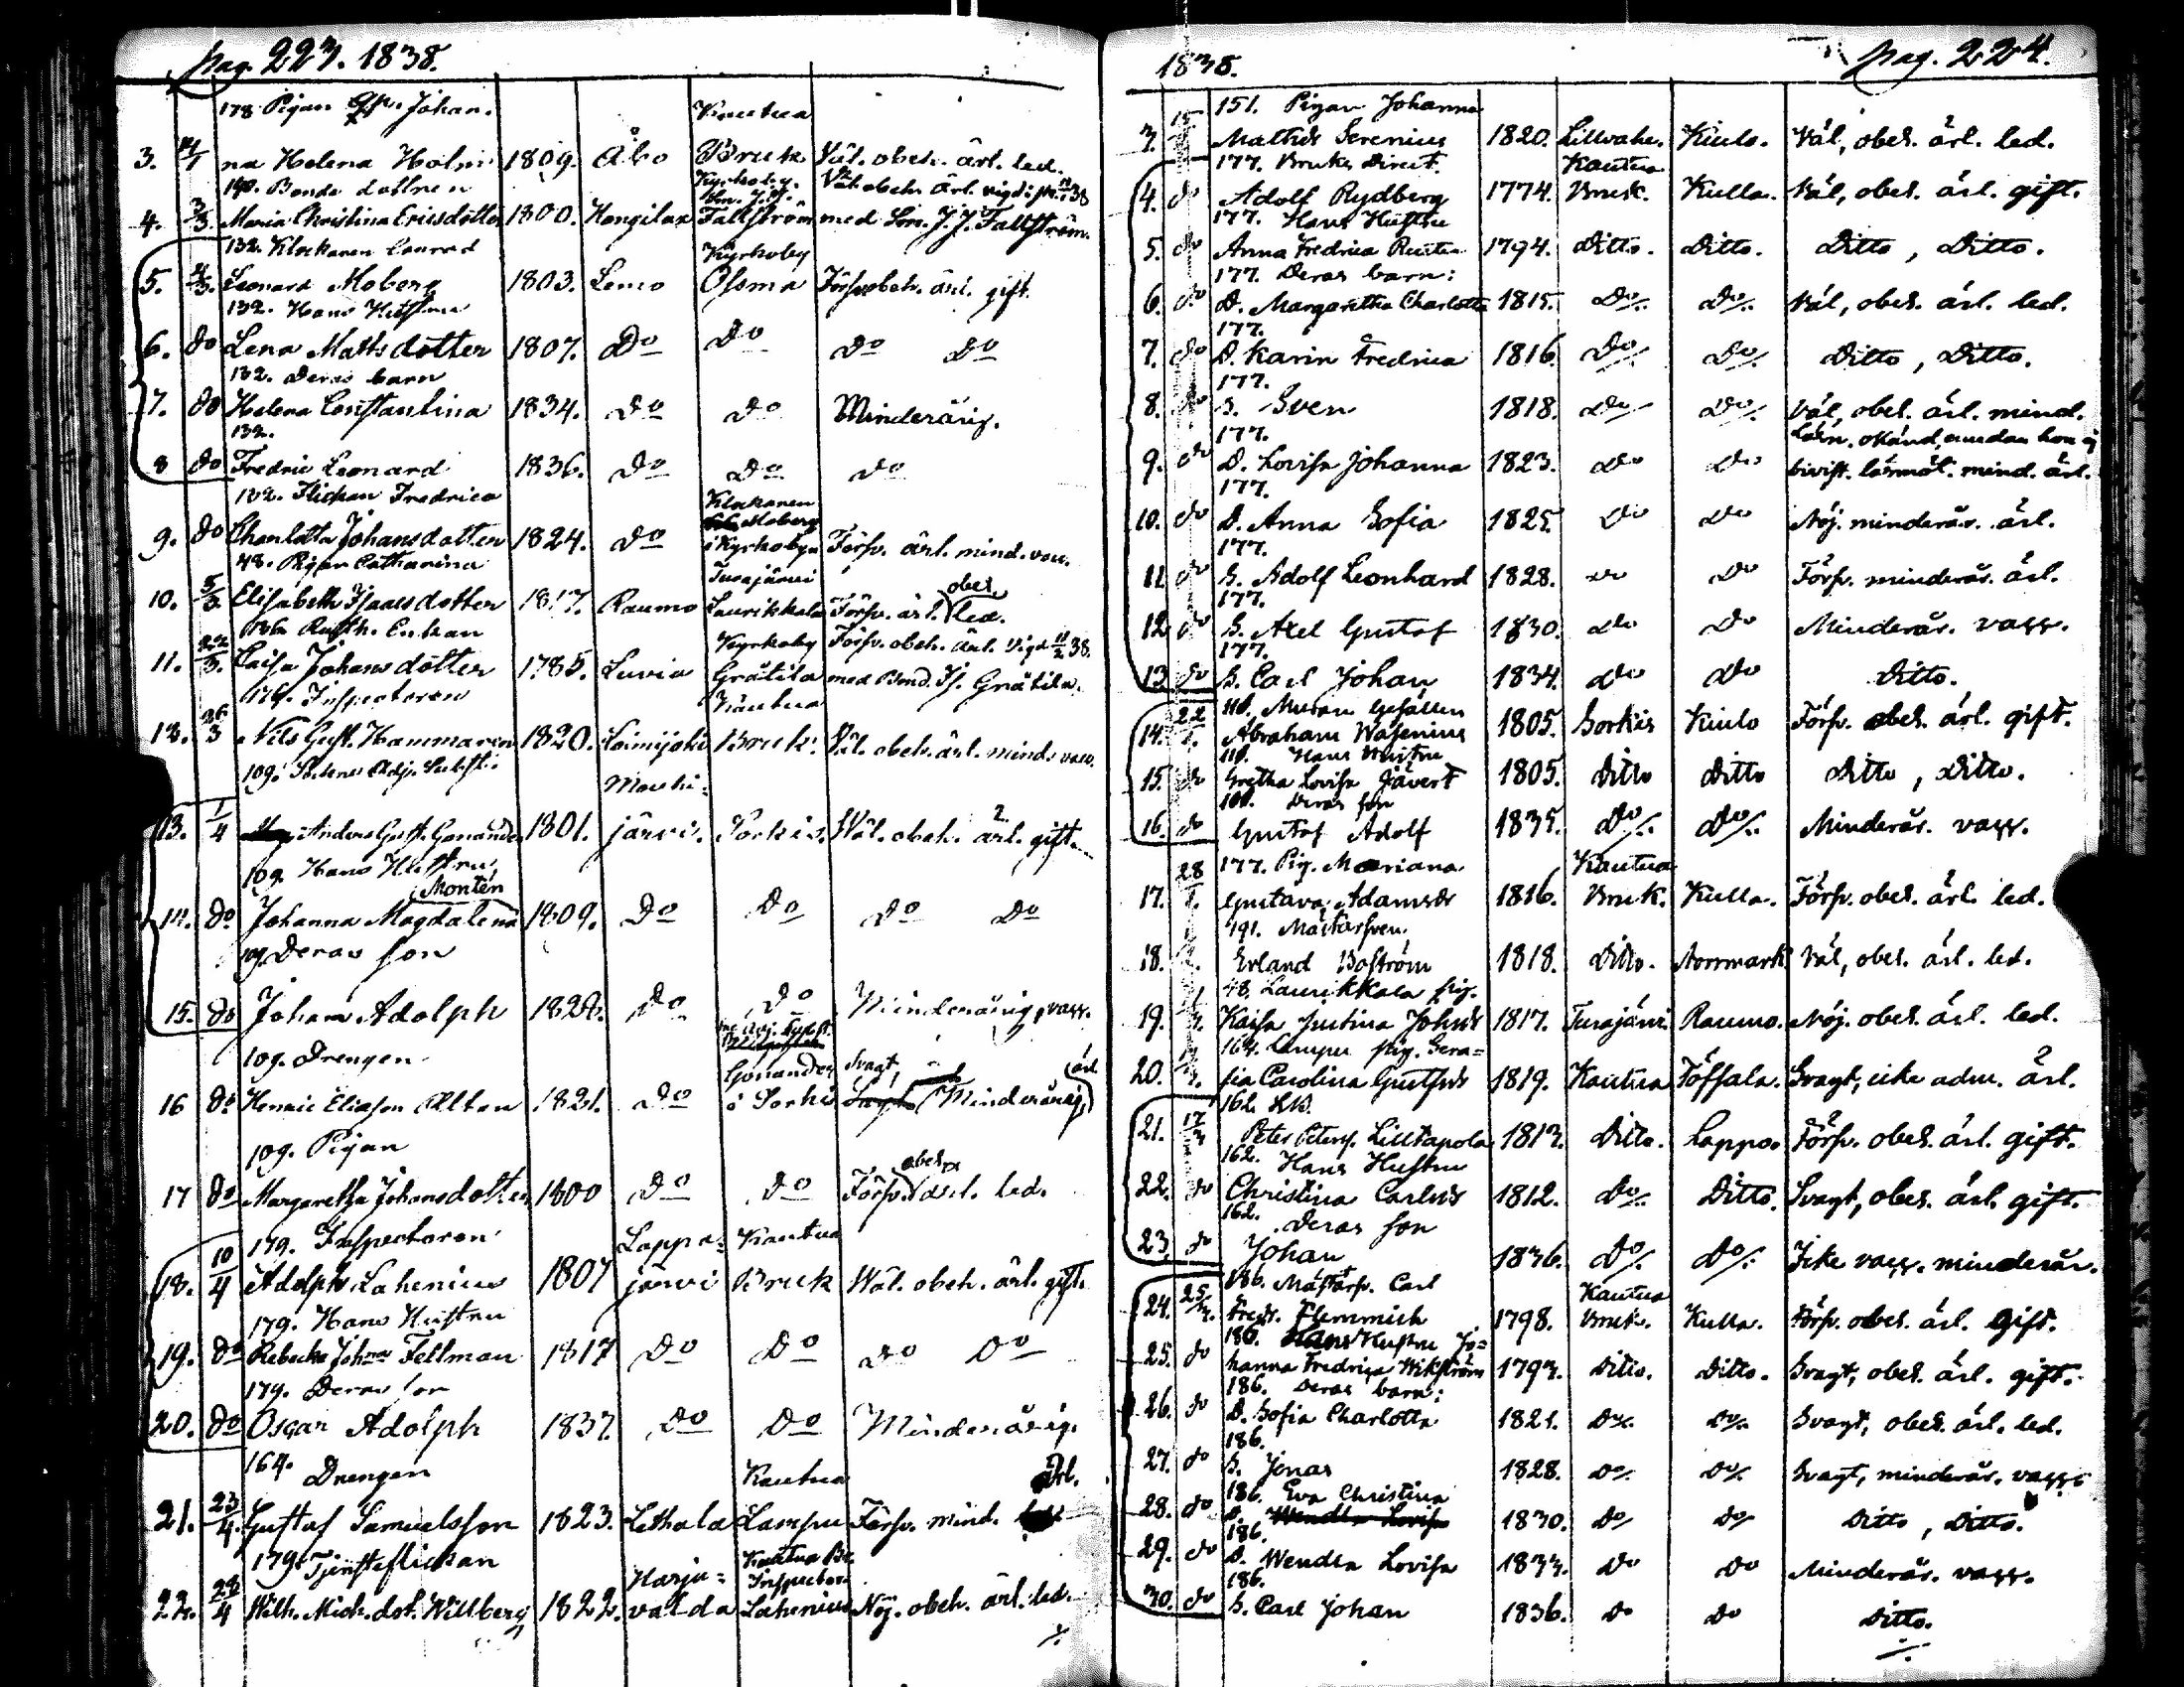 pag. 223. 1838.
178 Pigan Johan- Kautua
3. na Helena Holm 1809. Åbo Bruk Väl. obeh. ärl. led.
190. Bonde dottren Kyrkoby. Väl. obeh. ärl. vigd:
4. 3/3. Maria Christina Ericsdotter 1800. Kongilax Fallström med Son. J. J. Fallström.
132. Klockaren Conrad Kyrkoby
5. 4/3. Leonard Moberg 1803. Lemo Ofsma Försv. obeh. ärl. gift.
132. Hans Hustru
6. do Lena Mattsdotter 1807. Do Do Do Do
132. Deras barn
7. do Helena Constantina 1834. Do Do Minderårig.
132.
8 do Fredric Leonard 1836. Do Do Do
132. Flickan Fredrica Klockaren
9. do Charlotta Johansdotter 1824. Do Moberg i Kyrkobyn Försv. ärl. mind. vacc.
48. Pigan Catharina Turajärvi obeh.
10. 5/3. Elisabeth Isaacsdotter 1817. Raumo Laurikkala Försv. ärl. led.
136. Rusth. Enkan Kyrkoby Försv. obeh. ärl. Vigd 11/2 38.
11. 22/3. Caisa Johansdotter 1785. Luvia Grätila med Bond. Is. Grätila.
176. Inspectoren Kautua
12. 26/3 Nils Gust. Hammaren 1820. Loimijoki Bruk. Väl. obeh. ärl. mind. vacc.
109. Adj. Mouhi-
13. 1/4 Anders Gust. Gonander 1801. järvi. Sorkis. Wäl. obeh. ärl. gift.
109. Hans Hustru Montén
14. Do Johanna Magdalena 1809. Do Do Do Do
109. Deras son
15. do Johan Adolph 1828. Do Do Minderårig, vacc.
109. Drengen Gonander Svagt, ärl
16 do Henric Eliasson Altan 1821. Do i Sorkis Minderårig
109. Pigan obeh.
17 do Margaretha Johansdotter 1800 Do Do Försv. ärl. led.
179. Inspectoren Lappa- Kautua
18. 10/4 Adolph Lahenius 1807 järvi Bruk Wäl. obeh. ärl. gift.
179. Hans Hustru
19. do Rebecka Johna Fellman 1817 Do Do Do Do
179. Deras son
20. do Oscar Adolph 1837. Do Do Minderårig.
164. Drengen Kautua Ärl.
21. 23/4. Gustaf Samuelsson 1823. Lethala Lampu Försv. mind.
179. Tjensteflickan Harju- Kautua Br. Inspector
22. 28/4 Wilh. Mich. dot. Willberg 1822. valda Lahenius Nöj. obeh. ärl. led.
1838. pag. 224.
151. Pigan Johanna
3. Mathild Serenius 1820. Lillvahe. Kiulo. Väl, obeh. ärl. led.
177. Bruks Direct. Kautua
4. do Adolf Rydberg 1774. Bruk. Kulla. Väl, obeh. ärl. gift.
177. Hans Hustru
5. do Anna Fredrica 1794. Ditto. Ditto. Ditto, Ditto.
177. Deras barn:
6. do D. Margaretha Charlotta 1815. Do/. Do/. Väl, obeh. ärl. led.
177.
7. do D. Karin Fredrica 1816. Do/. Do/. Ditto, Ditto.
177.
8. do S. Sven 1818. Do/ Do/. Väl, obeh. ärl. mind.
177. okänd, emedan hon ej
9. do D. Lovisa Johanna 1823. Do Do bivist. läsmöt. mind. ärl.
177.
10. do D. Anna Sofia 1825 Do Do Nöj. minderår. ärl.
177.
11. do S. Adolf Leonhard 1828. Do Do Försv. minderår. ärl.
177.
12. do S. Axel Gustaf 1830. Do Do Minderår. vacc.
177.
13. do S. Carl Johan 1834. Do Do Ditto.
110. Muraregesällen
14. Abraham Wasenius 1805. Sorkis Kiulo Försv. obeh. ärl. gift.
110. Hans Hustru
15. do Gretha Lovisa Jävert 1805. Ditto Ditto Ditto, Ditto.
110. Deras son
16. do Gustaf Adolf 1835. Do/. Do/. Minderår. vacc.
28 177. Pig. Mariana Kautua
17. Gustava Adamsdr 1816. Bruk. Kulla. Försv. obeh. ärl. led.
191. Mästarsven.
18. Erland Boström 1818. Ditto. Norrmark Väl, obeh. ärl. led.
48. Laurikkala pig.
19. Kaisa Justina Johsdr 1817. Turajärvi. Raumo. Nöj. obeh. ärl. led.
164. Lampu pig. Sera-
20. fia Carolina Gustfsdr 1819. Kautua Töffsala. Svagt, icke adm. ärl.
162.
21. 17 Peter Petersf. Lilltapola 1813. Ditto. Lappo. Försv. obeh. ärl. gift.
162. Hans Hustru
22. do Christina Carlsdr 1812. Do/. Ditto. Svagt, obeh. ärl. gift.
162. Deras son
23. do Johan 1836. Do/. Do/. Icke vacc. minderår.
186. Mästarsv. Carl Kautua
24. 25 Fredr. Flemmich 1798. Bruk. Kulla. Försv. obeh. ärl. gift.
186. Hans Hustru Jo-
25. do hanna Fredrica Wikström 1793. Ditto. Ditto. Svagt, obeh. ärl. gift.
186. Deras barn:
26. do D. Sofia Charlotta 1821. Do/. Do/. Svagt, obeh. ärl. led.
186.
27. do S. Jonas 1828. Do/. Do/. Svagt, minderår. vacc.
186. Eva Christina
28. do D. Wendla Lovisa 1830. Do/ Do/ Ditto, Ditto.
186.
29. do D. Wendla Lovisa 1833. Do Do Minderår. vacc.
186.
30. do S. Carl Johan 1836. Do Do Ditto.